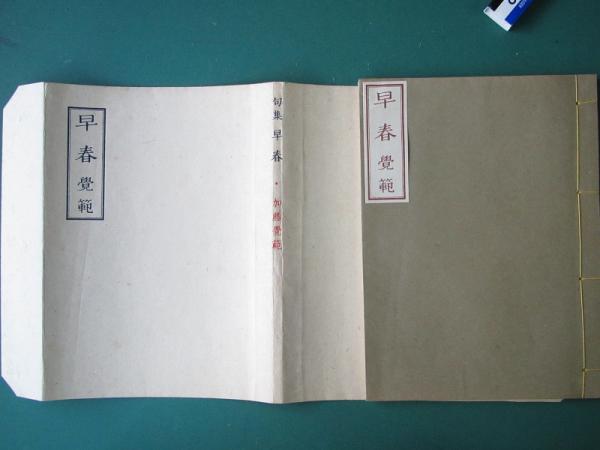 早春 覺範
句集 早春 ・ 加藤覺範
早春 覺範